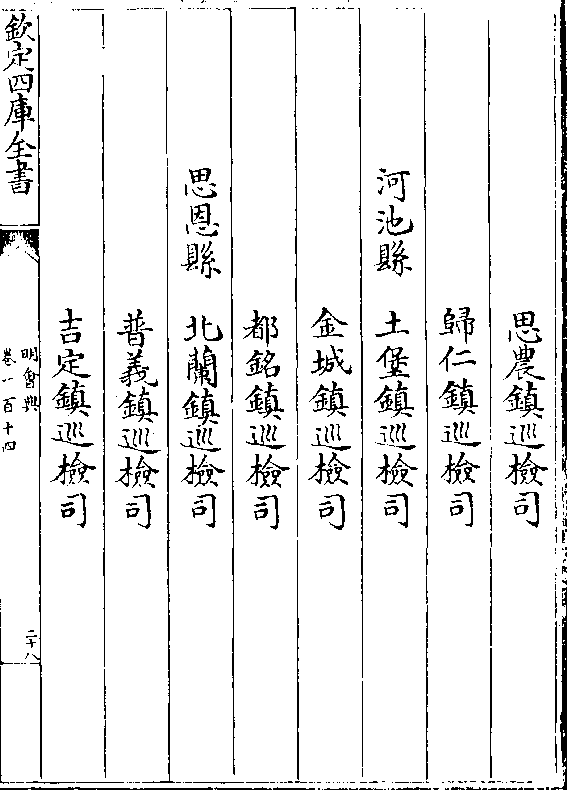 思農鎮巡檢司
歸仁鎮巡檢司
河池縣 土堡鎮巡檢司
金城鎮巡檢司
都銘鎮巡檢司
思恩縣 北蘭鎮巡檢司
普義鎮巡檢司
吉定鎮巡檢司
欽定四庫全書
明會典
卷一百十四
二十八